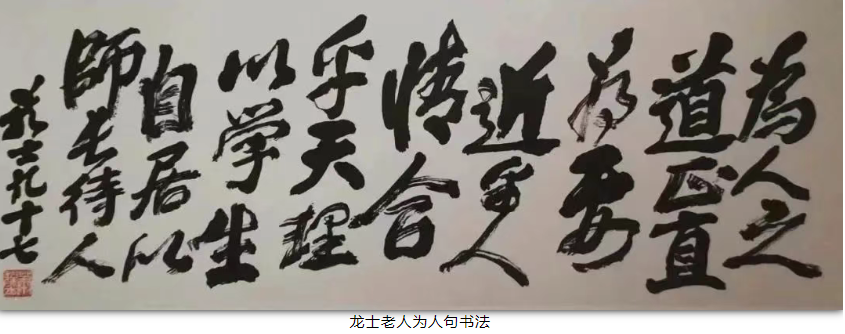 為人之
道正直
为要
近乎人
情合
乎天理
以学生
自居以
師长待人
龙士九十七
龙士老人为人句书法